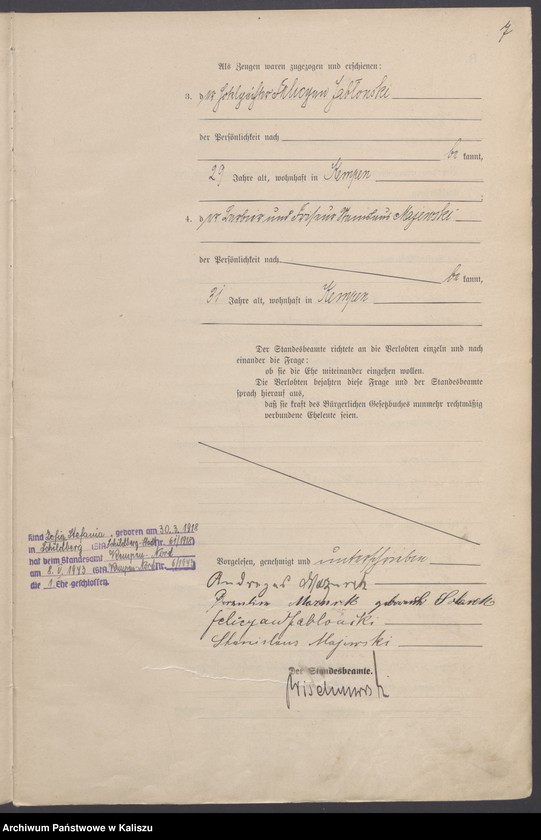 7
Als Zeugen waren zugezogen und erschienen:
3. der Felicyan Jabłonski
der Persönlichkeit nach
be kannt,
29 Jahre alt, wohnhaft in Kempen
4. der Barbier und Friseur Stanislaus Majewski
der Persönlichkeit nach
be kannt,
31 Jahre alt, wohnhaft in Kempen
Der Standesbeamte richtete an die Verlobten einzeln und nach
einander die Frage:
ob sie die Ehe miteinander eingehen wollen.
Die Verlobten bejahten diese Frage und der Standesbeamte
sprach hierauf aus,
daß sie kraft des Bürgerlichen Gesetzbuches nunmehr rechtmäßig
verbundene Eheleute seien.
Kind Zofia Stefania, geboren am 30.3.1918
in Schildberg (StA Schildberg Nr.
hat beim Standesamt Kempen-Nord
am 1943 (StA Kempen-Nord Nr. 6/1943
die 1. Ehe geschlossen.
Vorgelesen, genehmigt und unterschrieben
Andrzej
Mazurek geborene
Felicyan Jabłoński
Stanislaus Majewski
Der Standesbeamte.
Archiwum Państwowe w Kaliszu